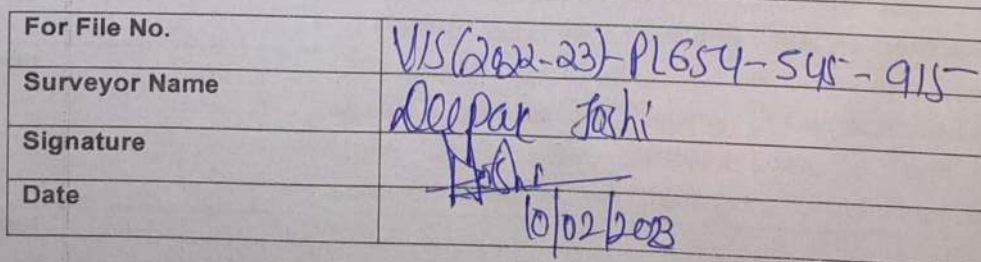 For File No. VIS(2022-23)-PL654-545-915
Surveyor Name Deepak Joshi
Signature Joshi
Date 10/02/2023